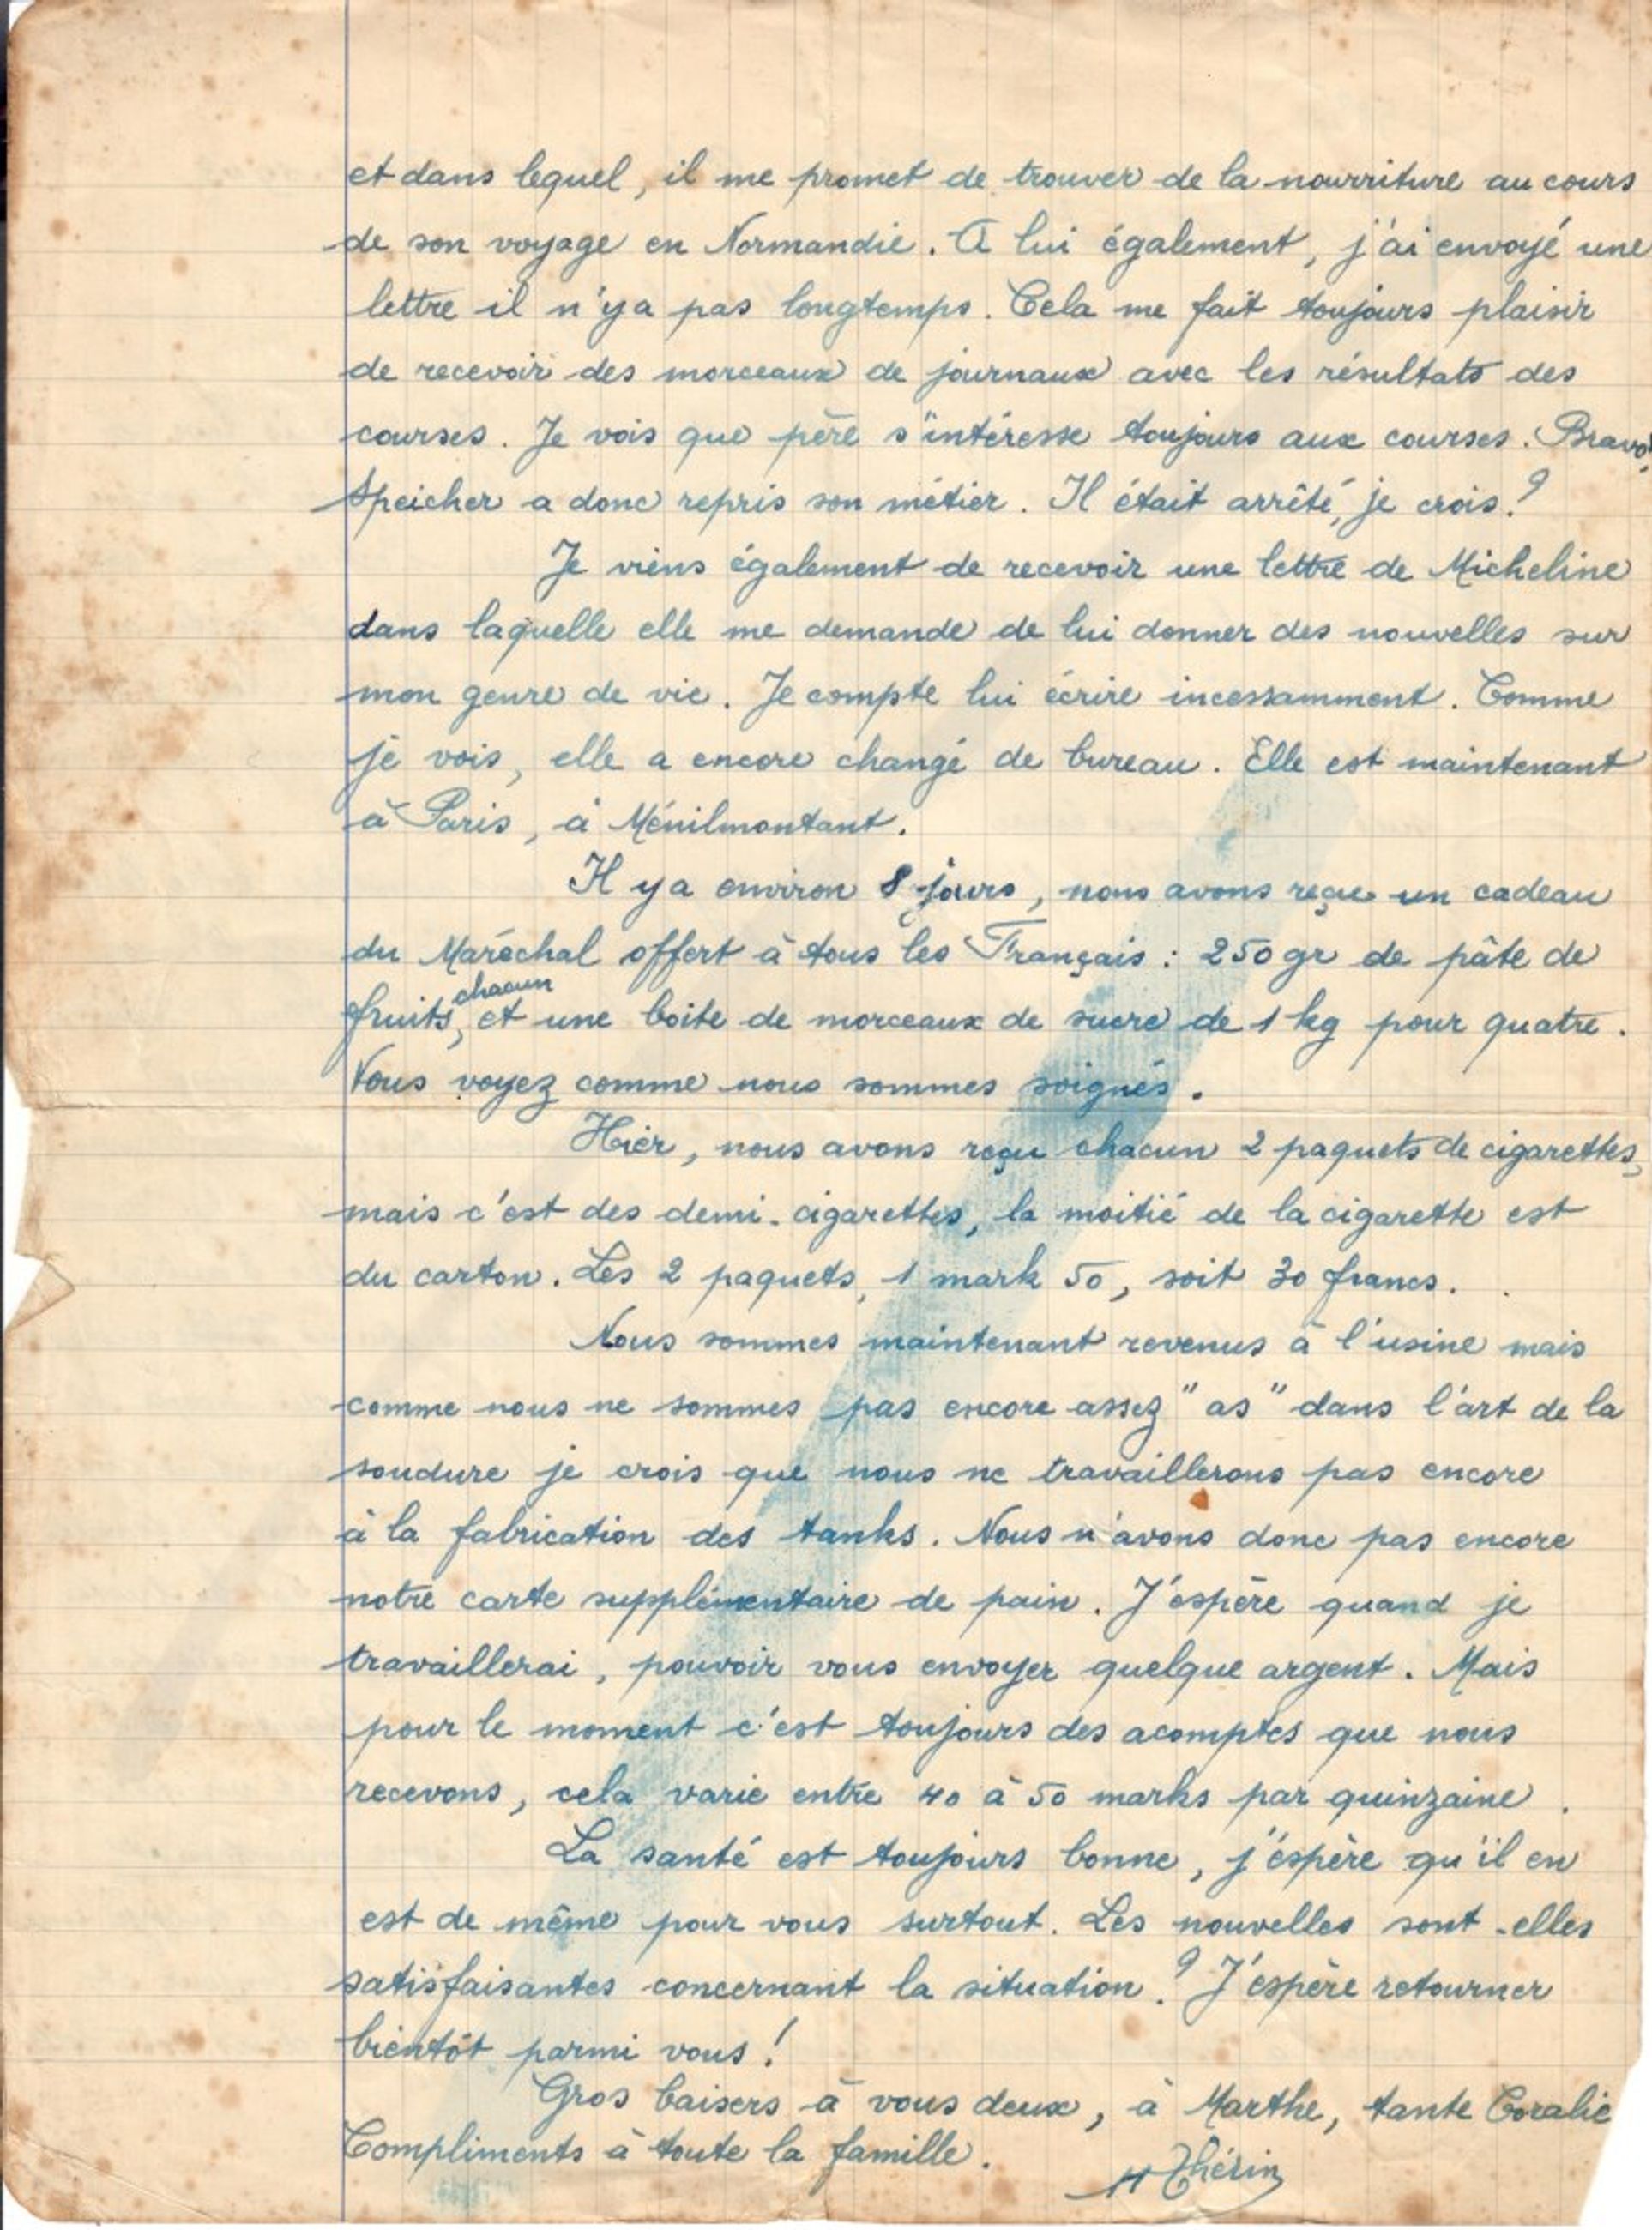 et dans lequel, il me promet de trouver de la nourriture au cours
de son voyage en Normandie. A lui également, j'ai envoyé une
lettre il n'y a pas longtemps. Cela me fait toujours plaisir
de recevoir des morceaux de journaux avec les résultats des
courses. Je vois que père s'intéresse toujours aux courses. Bravo,
Speicher a donc repris son métier. Il était arrêté, je crois ?
Je viens également de recevoir une lettre de Micheline
dans laquelle elle me demande de lui donner des nouvelles sur
mon genre de vie. Je compte lui écrire incessamment. Comme
je vois, elle a encore changé de bureau. Elle est maintenant
à Paris, à Ménilmontant.
Il y a environ 8 jours, nous avons reçu un cadeau
du Maréchal offert à tous les Français : 250 gr de pâte de
fruits chacun, et une boite de morceaux de sucre de 1 kg pour quatre.
Vous voyez comme nous sommes soignés.
Hier, nous avons reçu chacun 2 paquets de cigarettes,
mais c'est des demi-cigarettes, la moitié de la cigarette est
du carton. Les 2 paquets, 1 mark 50, soit 30 francs.
Nous sommes maintenant revenus à l'usine mais
comme nous ne sommes pas encore assez "as" dans l'art de la
soudure je crois que nous ne travaillerons pas encore
à la fabrication des tanks. Nous n'avons donc pas encore
notre carte supplémentaire de pain. J'espère quand je
travaillerai, pouvoir vous envoyer quelque argent. Mais
pour le moment c'est toujours des acomptes que nous
recevons, cela varie entre 40 à 50 marks par quinzaine.
La santé est toujours bonne, j'espère qu'il en
est de même pour vous surtout. Les nouvelles sont-elles
satisfaisantes concernant la situation ? J'espère retourner
bientôt parmi vous !
Gros baisers à vous deux, à Marthe, tante Coralie
Compliments à toute la famille.
H Thérin